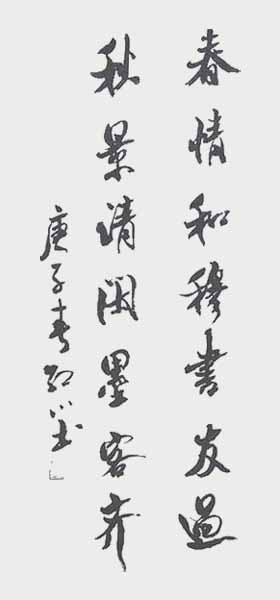 春情和穆書友過
秋景清閑墨客齐
庚子春